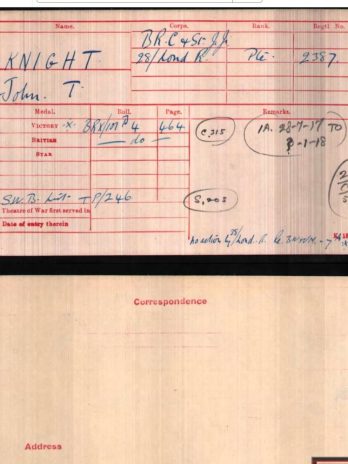 Name. Corps. Rank. Regtl No.
KNIGHT B.R.C & St. J.J.
28/Lond R. Pte. 2387.
John. T.
Medal. Roll. Page. Remarks.
VICTORY X. BRX/101 4 464 C.315 1A. 28-7-17 TO
BRITISH — do — -1-18
STAR
S.W.B. List TP/246 S.203
Theatre of War first served in
Date of entry therein
No action by 28/Lond. R.
Correspondence
Address